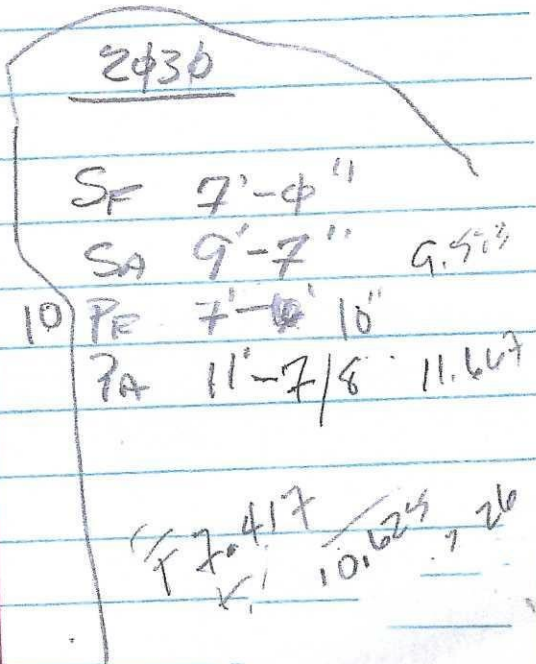 2030
SF 7'-0"
SA 9'-7" 9.583
10 PF 7'-10"
PA 11'-7/8 11.667
F 7.417 10.625 26